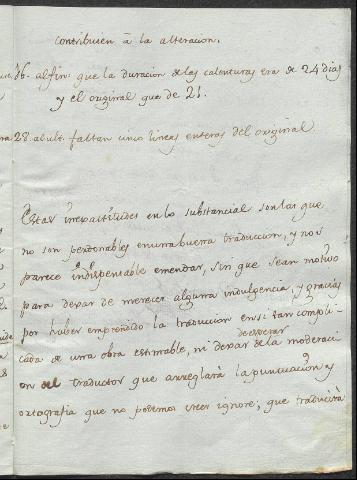 contribuien á la alteracion.
36. alfin. que la duracion de las calenturas era de 24 dias
y el original que de 21.
28. al ult. faltan cinco lineas enteras del original
Estas inexactitudes en lo substancial son las que
no son perdonables en una buena traduccion, y nos
parece indispensable emendar, sin que sean motivo
para dexar de merecer alguna indulgencia, y gracias
por haber emprendido la traduccion en si tan compli-
cada de una obra estimable, ni dexar de esperar de la moderaci
on del traductor que arreglará la puntuacion y
ortografia que no podemos creer ignore; que traducirá